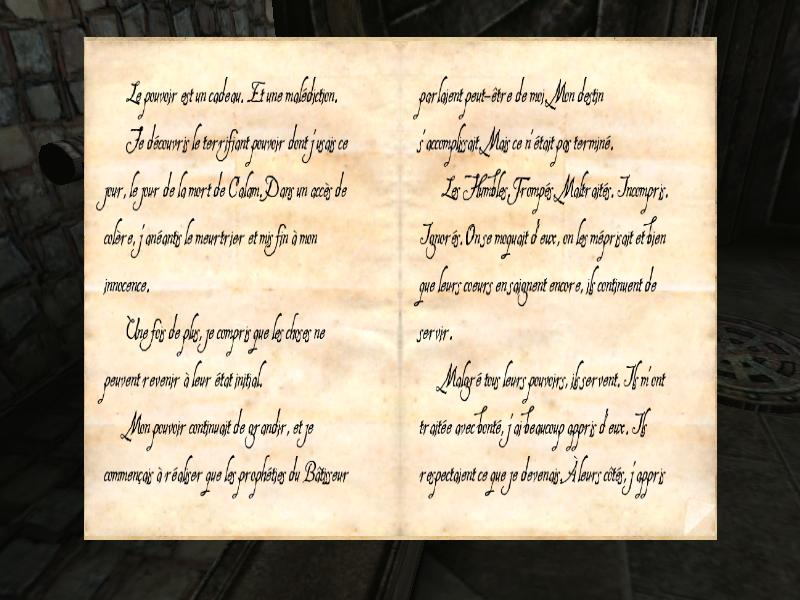 Le pouvoir est un cadeau. Et une malédiction.
Je découvris le terrifiant pouvoir dont j'usais ce
jour, le jour de la mort de Calam. Dans un accès de
colère, j'anéantis le meurtrier et mis fin à mon
innocence.
Une fois de plus, je compris que les choses ne
peuvent revenir à leur état initial.
Mon pouvoir continuait de grandir, et je
commençais à réaliser que les prophéties du Bâtisseur
parlaient peut-être de moi. Mon destin
s'accomplissait. Mais ce n'était pas terminé.
Les Humbles. Trompés. Maltraités. Incompris.
Ignorés. On se moquait d'eux, on les méprisait et bien
que leurs coeurs en saignent encore, ils continuent de
servir.
Malgré tous leurs pouvoirs, ils servent. Ils m'ont
traitée avec bonté, j'ai beaucoup appris d'eux. Ils
respectaient ce que je devenais. À leurs côtés, j'appris